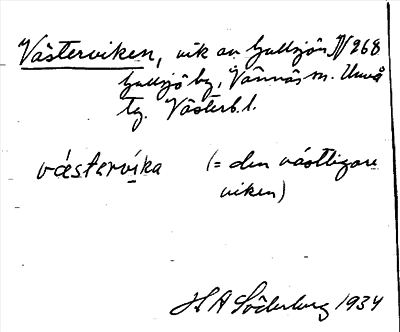 Västerviken, vik av Gullsjön IV 268
Gullsjö by, Vännäs sn. Umeå
tg. Västerb. l.
västervíka (= den västligare
viken)
H A Söderberg 1934